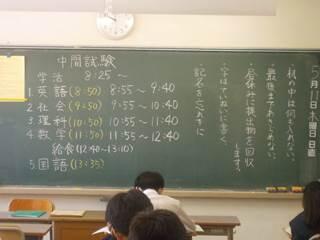 中間試験
学活 8:25 ～
1. 英語 (8:50) 8:55 ～ 9:40
2. 社会 (9:50) 9:55 ～ 10:40
3. 理科 (10:50) 10:55 ～ 11:40
4. 数学 (11:50) 11:55 ～ 12:40
給食 (12:40～13:10)
5. 国語 (13:35)
5月11日 木曜日 日直
・机の中は何も入れない。
・最後まであきらめない。
・昼休みに提出物を回収します。
・字はていねいに書く。
・記名を忘れずに